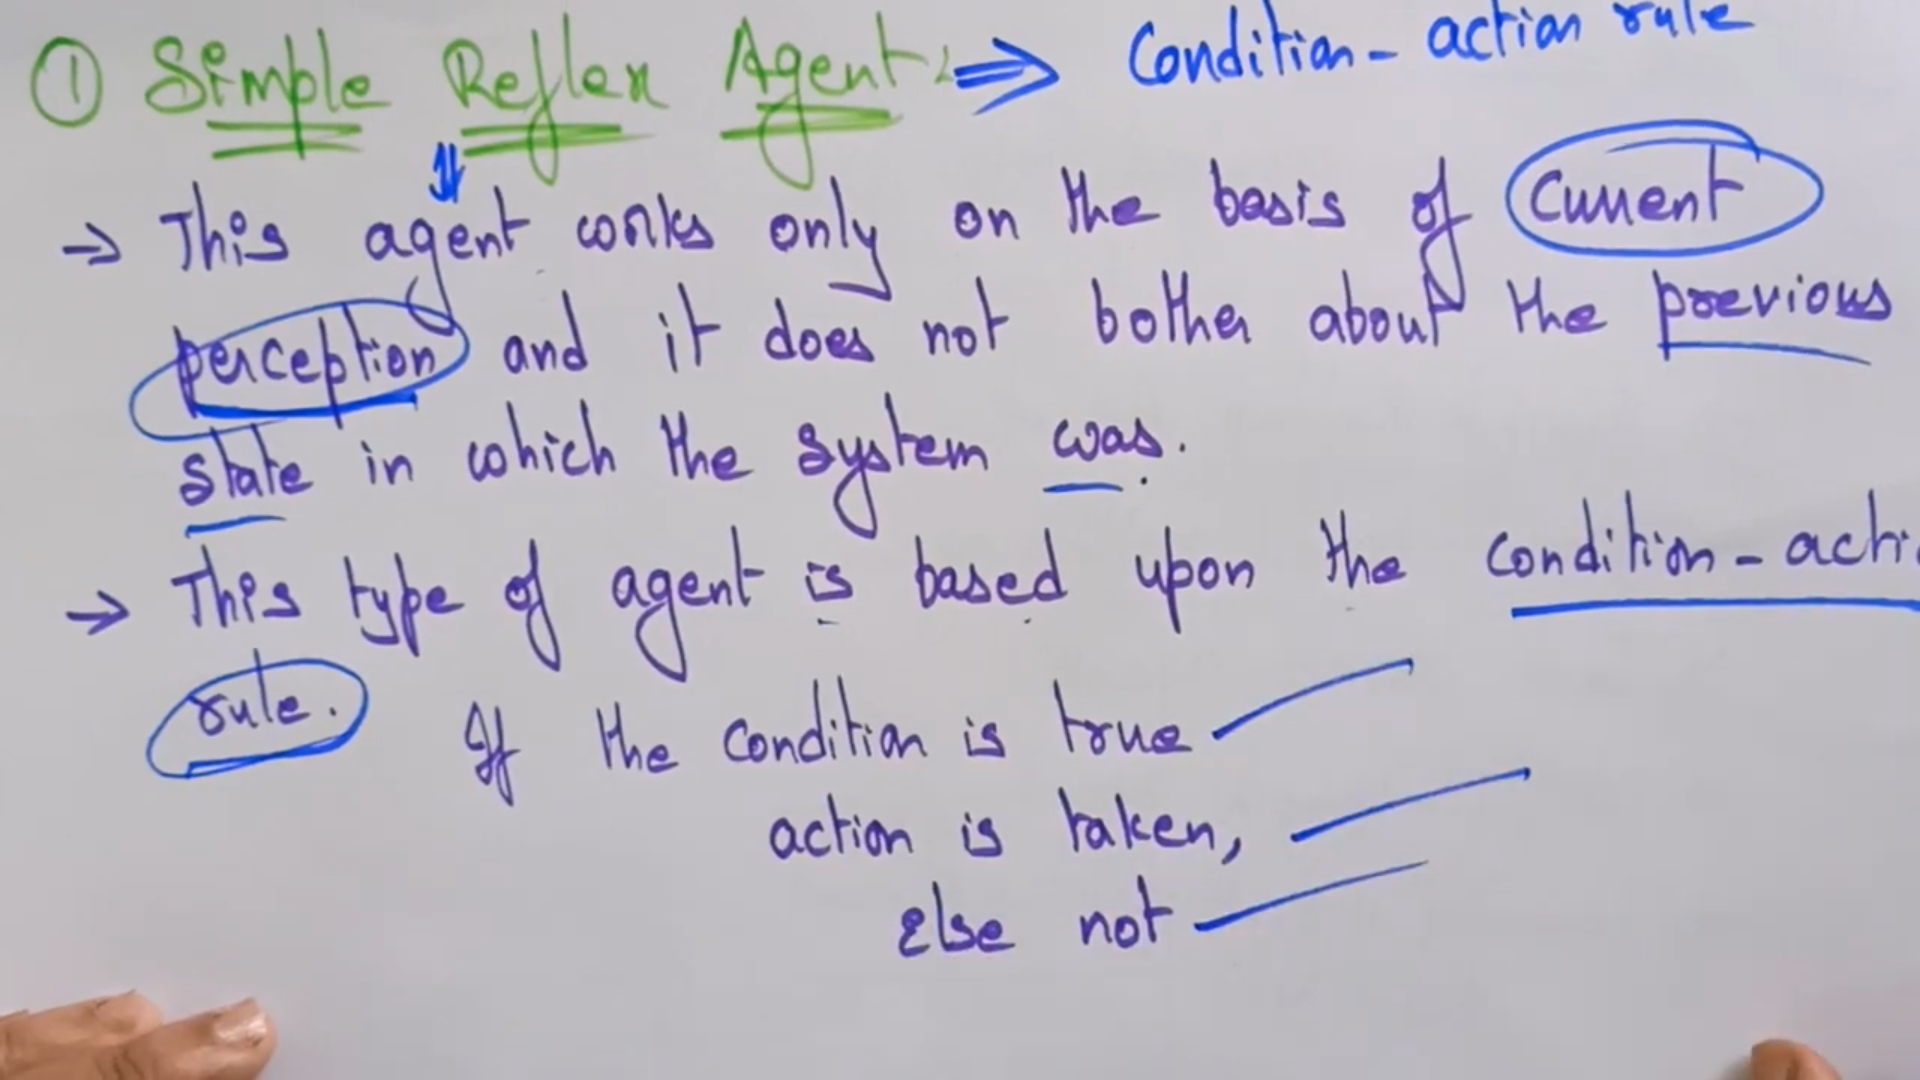 ① Simple Reflex Agent: ⇒ Condition - action rule
→ This agent works only on the basis of current
perception and it does not bother about the previous
state in which the system was.
→ This type of agent is based upon the condition - acti
rule. If the condition is true
action is taken,
else not